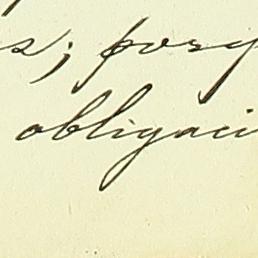 s; porq
obligaci